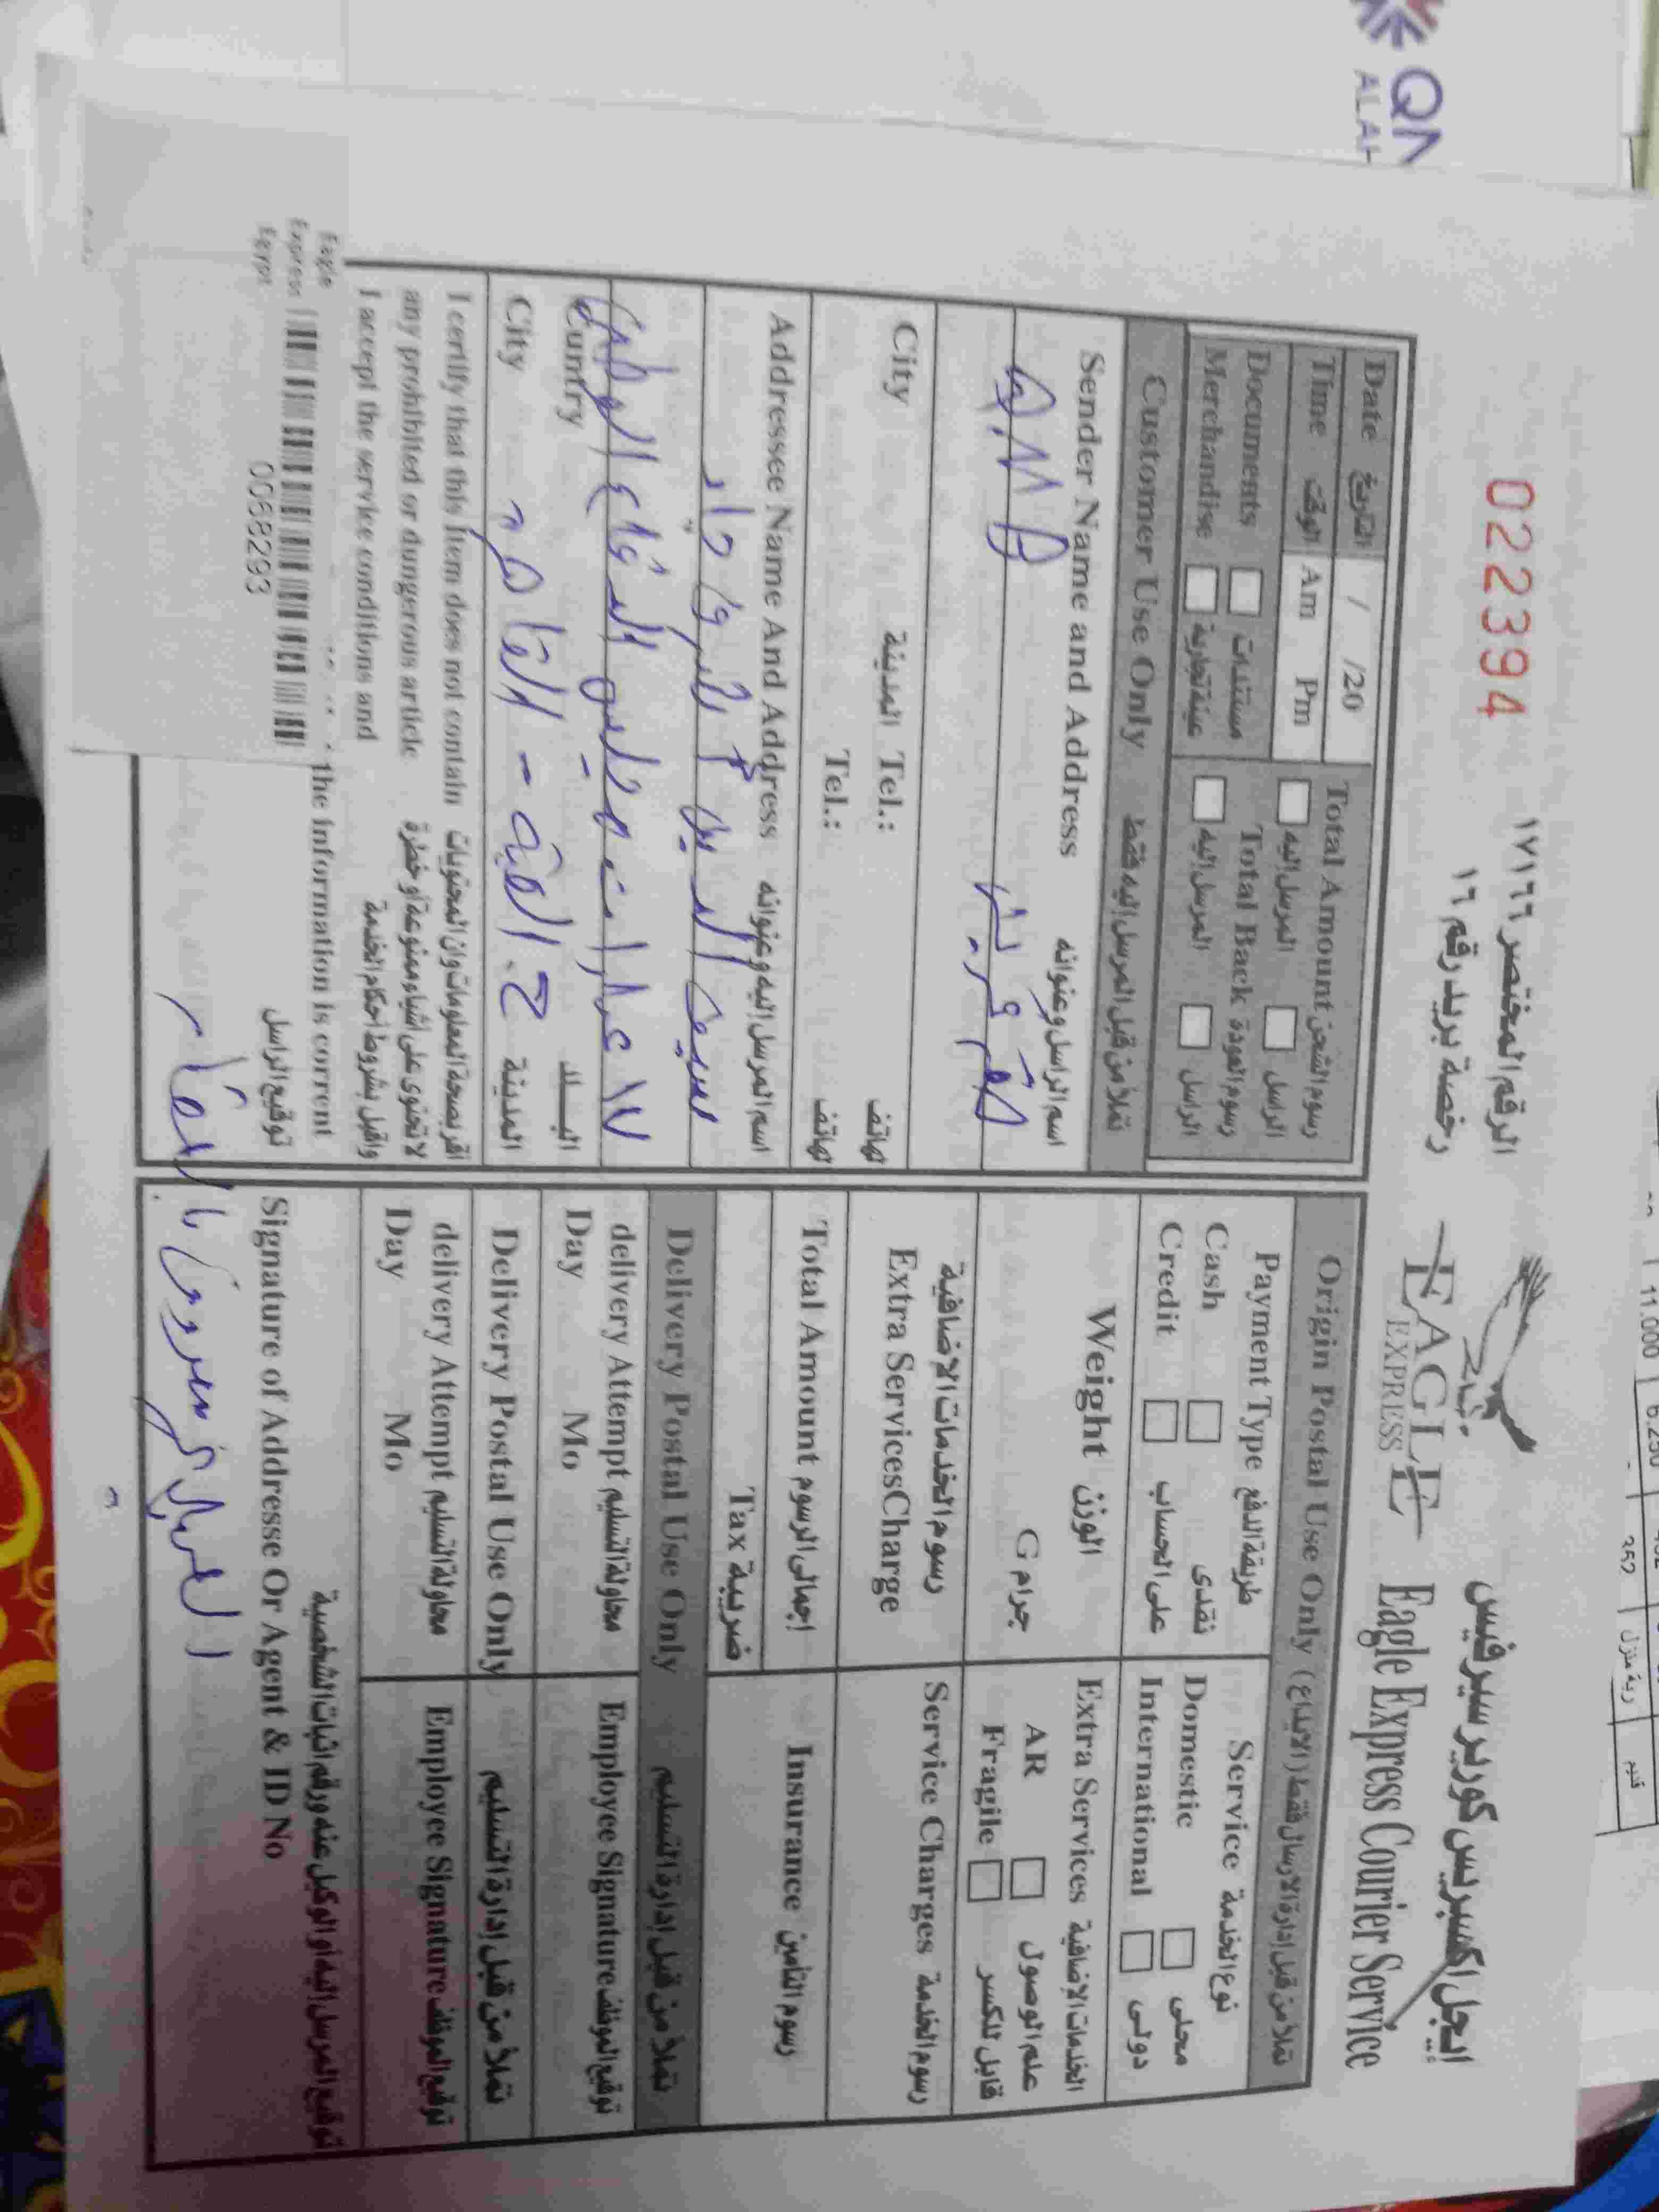 QN
ALAH
0223394
الرقم المختصر ١٧١٦٦
رخصة بريد رقم ١٦
EAGLE
EXPRESS
إيجل اكسبريس كوريير سيرفيس
Eagle Express Courier Service
Date التاريخ / /20
Time الوقت Am Pm
Documents مستندات
Merchandise عينة تجارية
Total Amount رسوم الشحن
المرسل اليه الراسل
Total Back رسوم العودة
المرسل اليه الراسل
Customer Use Only تملأ من قبل المرسل اليه فقط
Sender Name and Address اسم الراسل وعنوانه
QNB
City المدينة Tel.: هاتف
Tel.: هاتف
Addressee Name And Address اسم المرسل اليه وعنوانه
سيف الدين
عمارات
Cuntry البـــلد
City القاهرة المدينة
I certify that this item does not contain
any prohibited or dungerous article
I accept the service conditions and
the information is corrent
اقر بصحة المعلومات وان المحتويات
لا تحتوى على اشياء ممنوعة أو خطرة
واقبل بشروط أحكام الخدمة
توقيع الراسل
Eagle
Express
Egypt
0088293
Origin Postal Use Only تملأ من قبل إدارة الارسال فقط (الايداع)
Payment Type طريقة الدفع
Cash نقدى
Credit على الحساب
Service نوع الخدمة
Domestic محلى
International دولى
Weight الوزن
G جرام
Extra Services الخدمات الاضافية
AR علم الوصول
Fragile قابل للكسر
رسوم الخدمات الاضافية
Extra ServicesCharge
Service Charges رسوم الخدمة
Total Amount اجمالى الرسوم
Tax ضريبة
Insurance رسوم التأمين
Delivery Postal Use Only تملأ من قبل إدارة التسليم
delivery Attempt محاولة التسليم
Day Mo
Employee Signature توقيع الموظف
Delivery Postal Use Only تملأ من قبل إدارة التسليم
delivery Attempt محاولة التسليم
Day Mo
Employee Signature توقيع الموظف
توقيع المرسل اليه أو الوكيل عنه ورقم اثبات الشخصية
Signature of Addresse Or Agent & ID No
11.000
6.250
352
ربة منزل